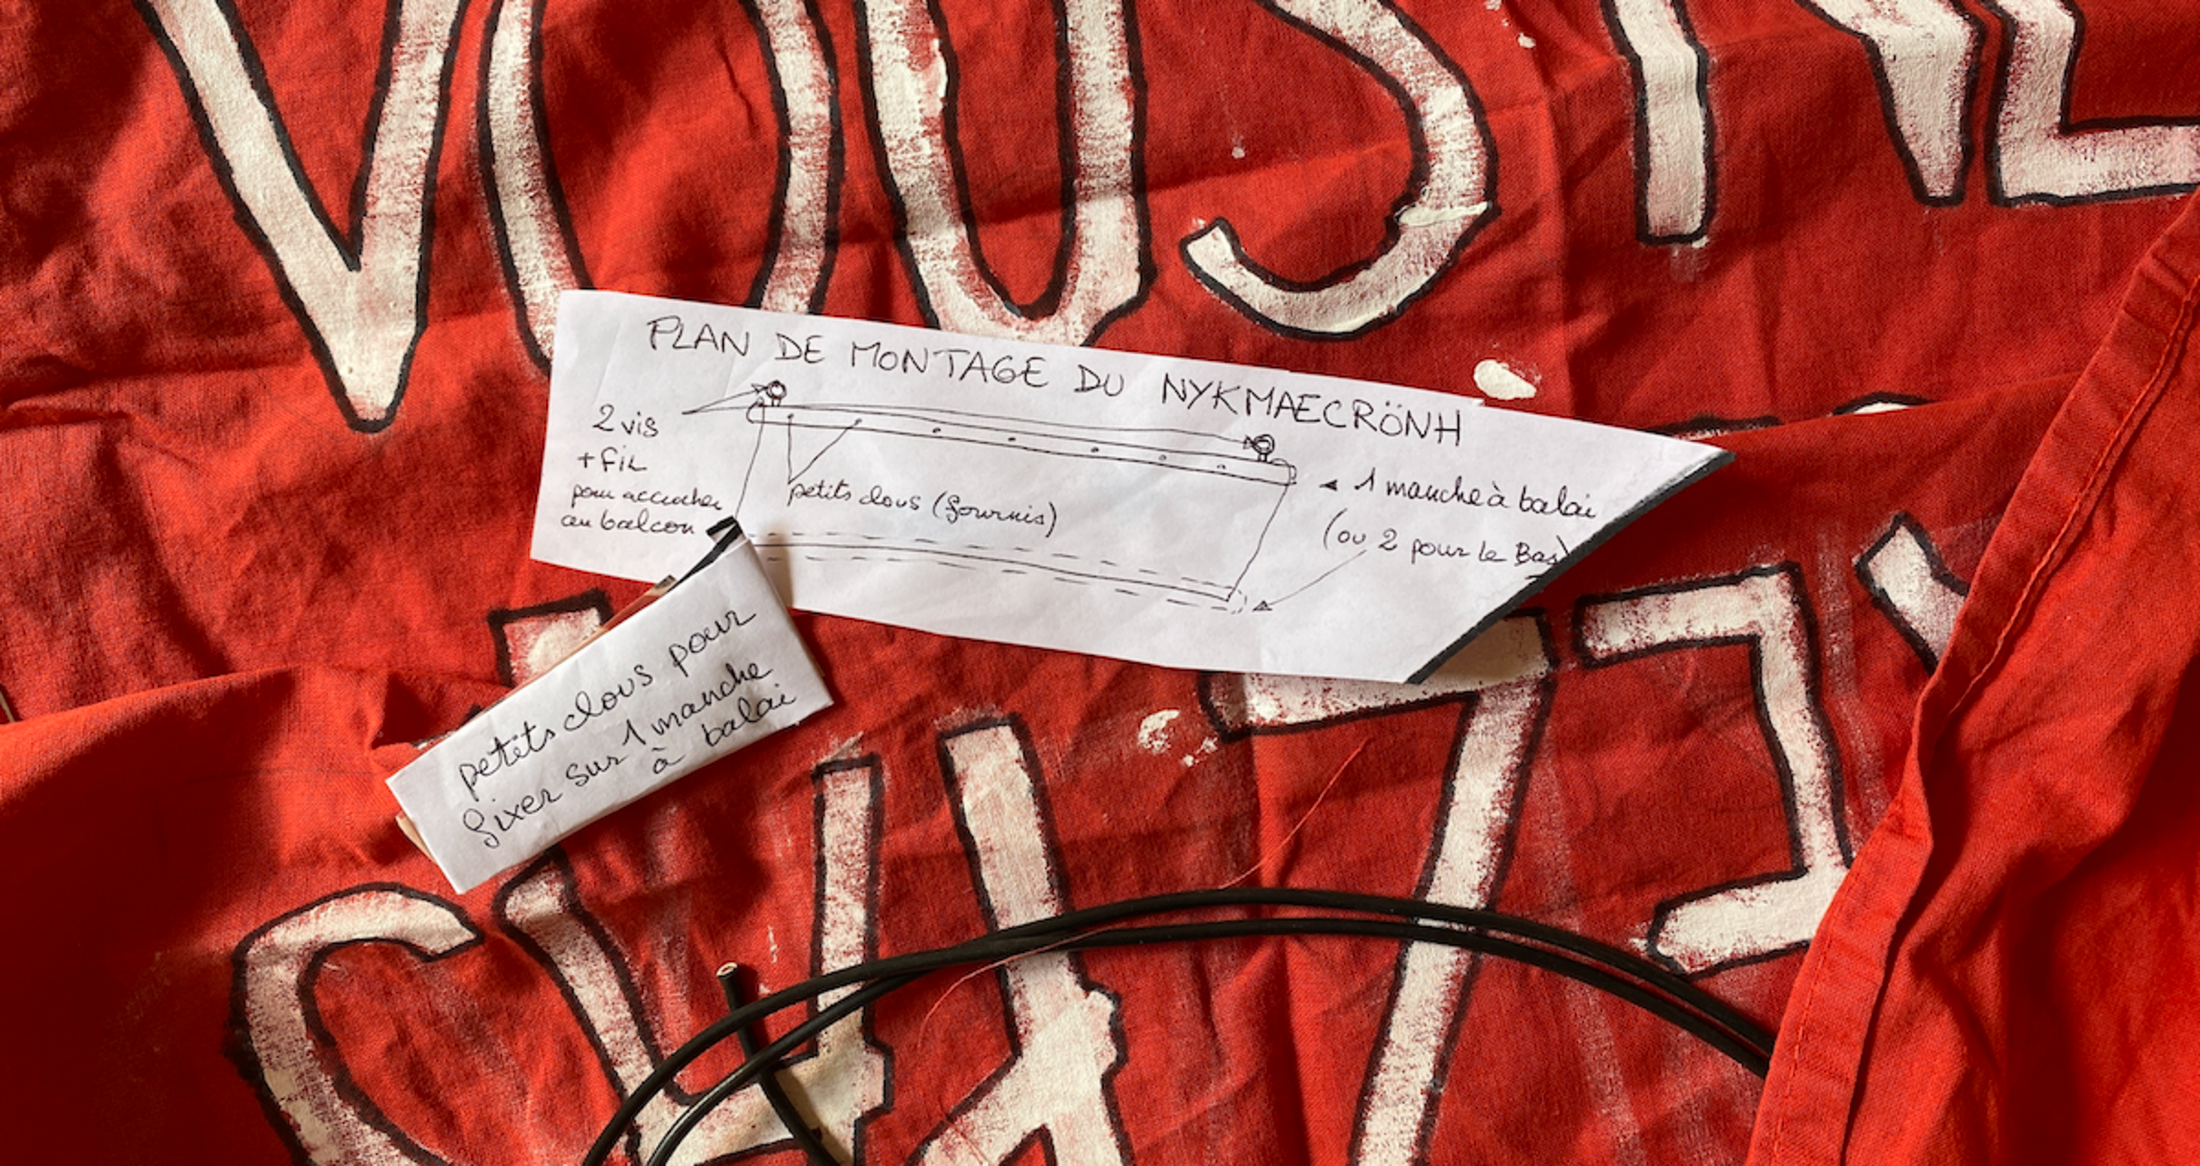 VOUS NE
PLAN DE MONTAGE DU NYKMAECRÖNH
2 vis
+ fil
pour accrocher
au balcon
petits clous (fournis)
1 manche à balai
(ou 2 pour le Bas)
petits clous pour
fixer sur 1 manche
à balai